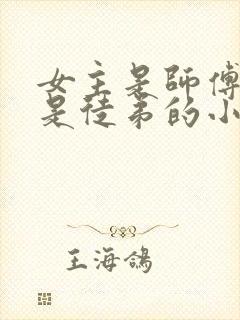 女主是師傅
是徒弟的小
王海鴿